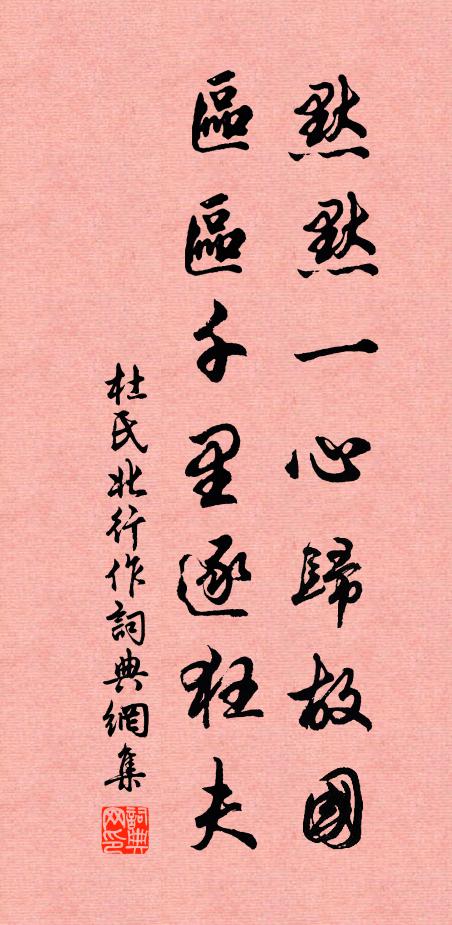 默默一心歸故國
區區千里逐狂夫
杜氏北行作詞典網集
詞典網印